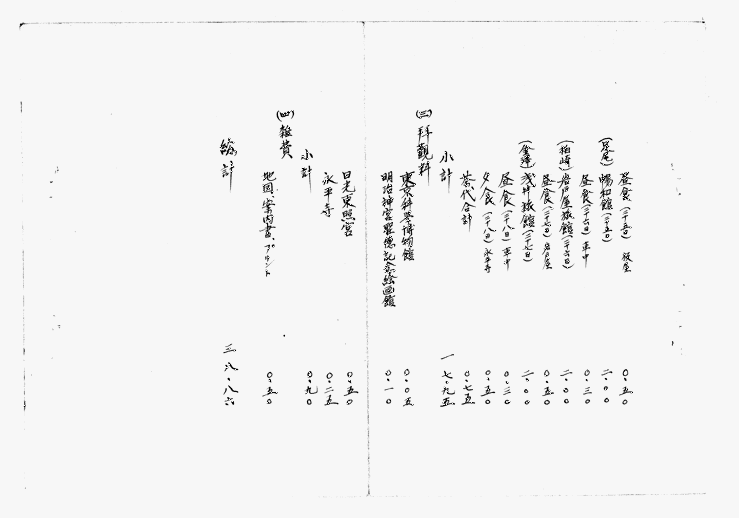 昼食(二十五日) 飯屋 〇・五〇
(足尾)鶴和館(二十五日) 二・〇〇
昼食(二十六日)車中 〇・三〇
(柏崎)岩戸屋旅館(二十六日) 二・〇〇
昼食(二十七日)岩戸屋 〇・五〇
(金澤)浅井旅館(二十七日) 二・〇〇
昼食(二十八日)車中 〇・三〇
夕食(二十八日)永平寺 〇・五〇
茶代合計 〇・七五
小計 一七・九五
(三)拝觀料
東京科学博物館 〇・〇五
明治神宮聖徳記念絵画館 〇・一〇
日光東照宮 〇・五〇
永平寺 〇・二五
小計 〇・九〇
(四)雑費
地図、案内書、プリント 〇・五〇
総計 三八・八六